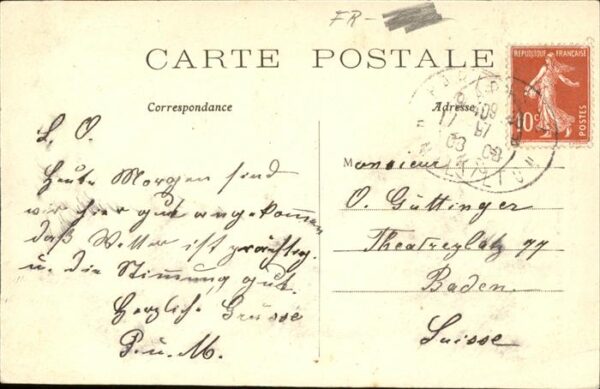 FR-
CARTE POSTALE
REPUBLIQUE FRANÇAISE
10c
POSTES
Correspondance
Adresse
L. O.
Heute Morgen sind
wir hier gut angekommen
daß Wetter ist prächtig.
u. die Stimmung gut.
Herzliche Grüsse
P. u. M.
Monsieur
O. Güttinger
Theatreplatz 77
Baden.
Suisse